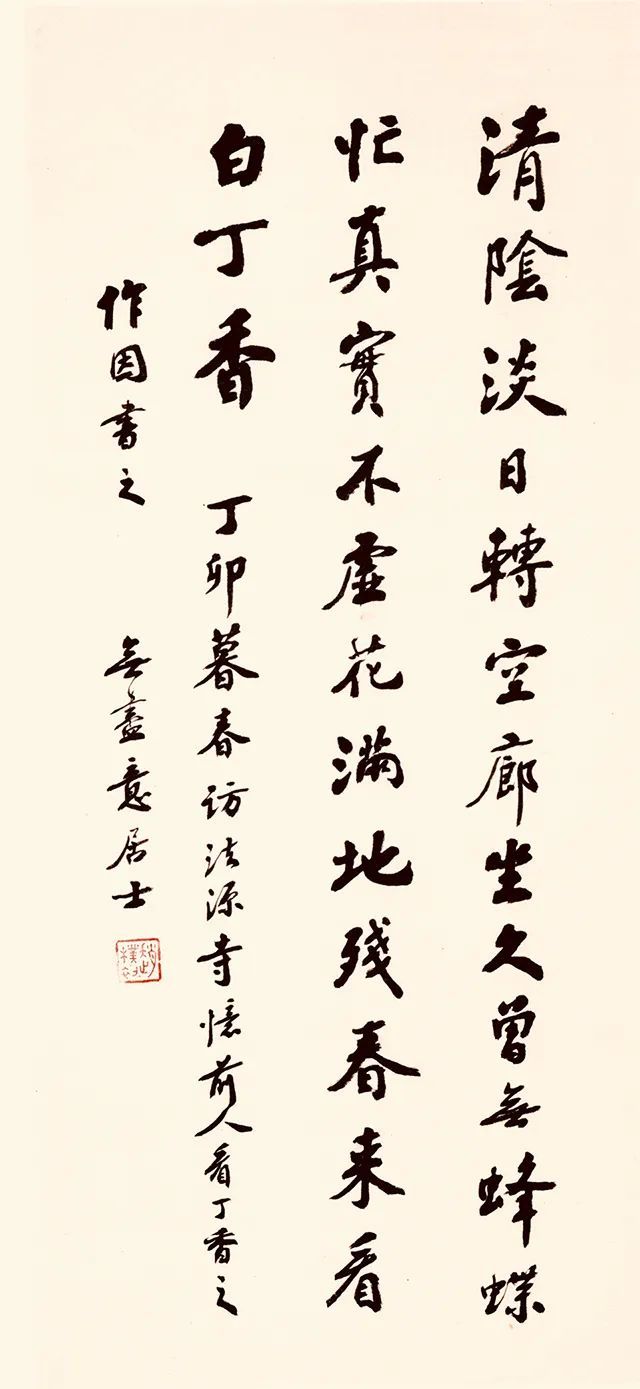 清陰淡日轉空廊坐久曾無蜂蝶
忙真實不虛花滿地殘春来看
白丁香 丁卯暮春訪法源寺憶前人看丁香之
作因書之 無盡意居士